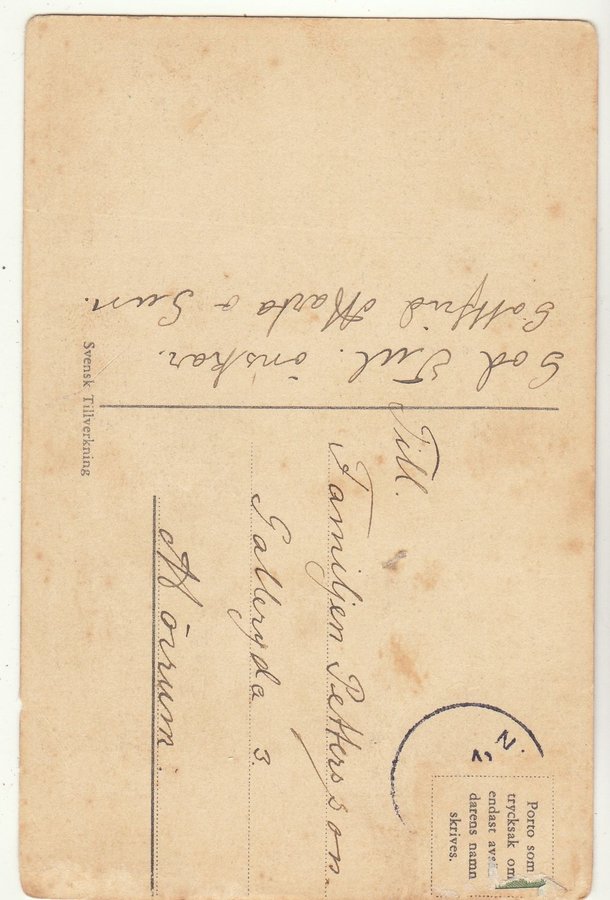 God Jul. önskar.
Gottfrid Marta o Sven.
Svensk Tillverkning
Till.
Familjen Pettersson.
Galleryda 3.
Mörrum.
N.
Porto som
trycksak om
endast
darens namn
skrives.